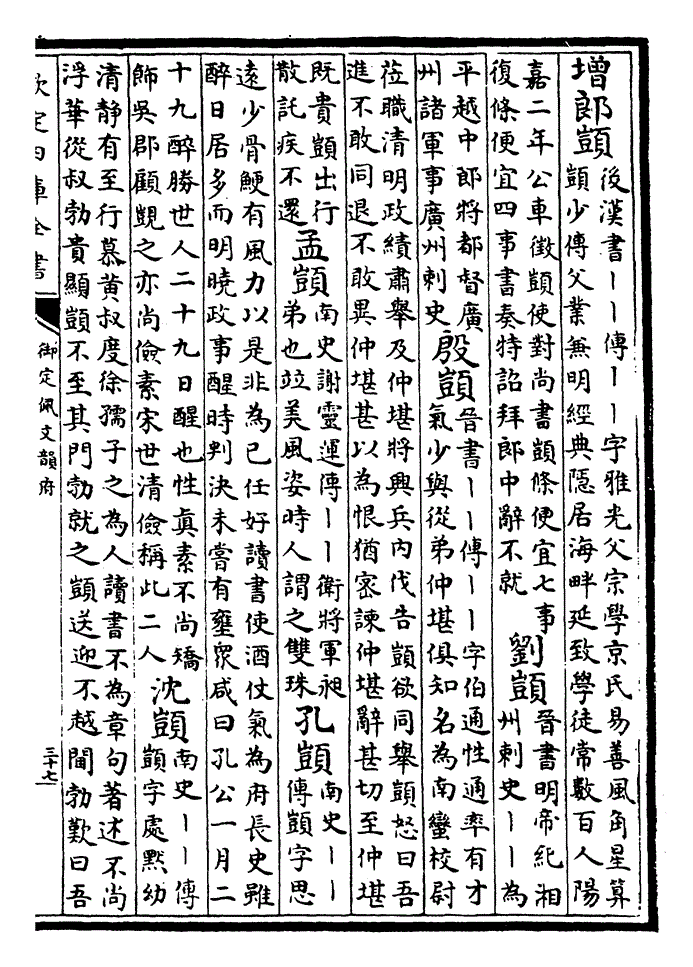 增郎顗
後漢書丨丨傳丨丨字雅光父宗學京氏易善風角星算
顗少傳父業無明經典隱居海畔延致學徒常數百人陽
嘉二年公車徵顗使對尚書顗條便宜七事
復條便宜四事書奏特詔拜郎中辭不就
劉顗
晉書明帝紀湘
州刺史丨丨為
平越中郎將都督廣
州諸軍事廣州刺史
殷顗
晉書丨丨傳丨丨字伯通性通率有才
氣少與從弟仲堪俱知名為南蠻校尉
莅職清明政績肅舉及仲堪將興兵内伐告顗欲同舉顗怒曰吾
進不敢同退不敢異仲堪甚以為恨猶密諫仲堪辭甚切至仲堪
既貴顗出行
散託疾不還
孟顗
南史謝靈運傳丨丨衛將軍昶
弟也竝美風姿時人謂之雙珠
孔顗
南史丨丨
傳顗字思
遠少骨鯁有風力以是非為已任好讀書使酒仗氣為府長史雖
醉日居多而明曉政事醒時判決未嘗有壅衆咸曰孔公一月二
十九醉勝世人二十九日醒也性眞素不尚矯
飾吳郡顧覬之亦尚儉素宋世清儉稱此二人
沈顗
南史丨丨傳
顗字處黙幼
清静有至行慕黄叔度徐孺子之為人讀書不為章句著述不尚
浮華從叔勃貴顯顗不至其門勃就之顗送迎不越閫勃歎曰吾
欽定四庫全書
御定佩文韻府
三十七